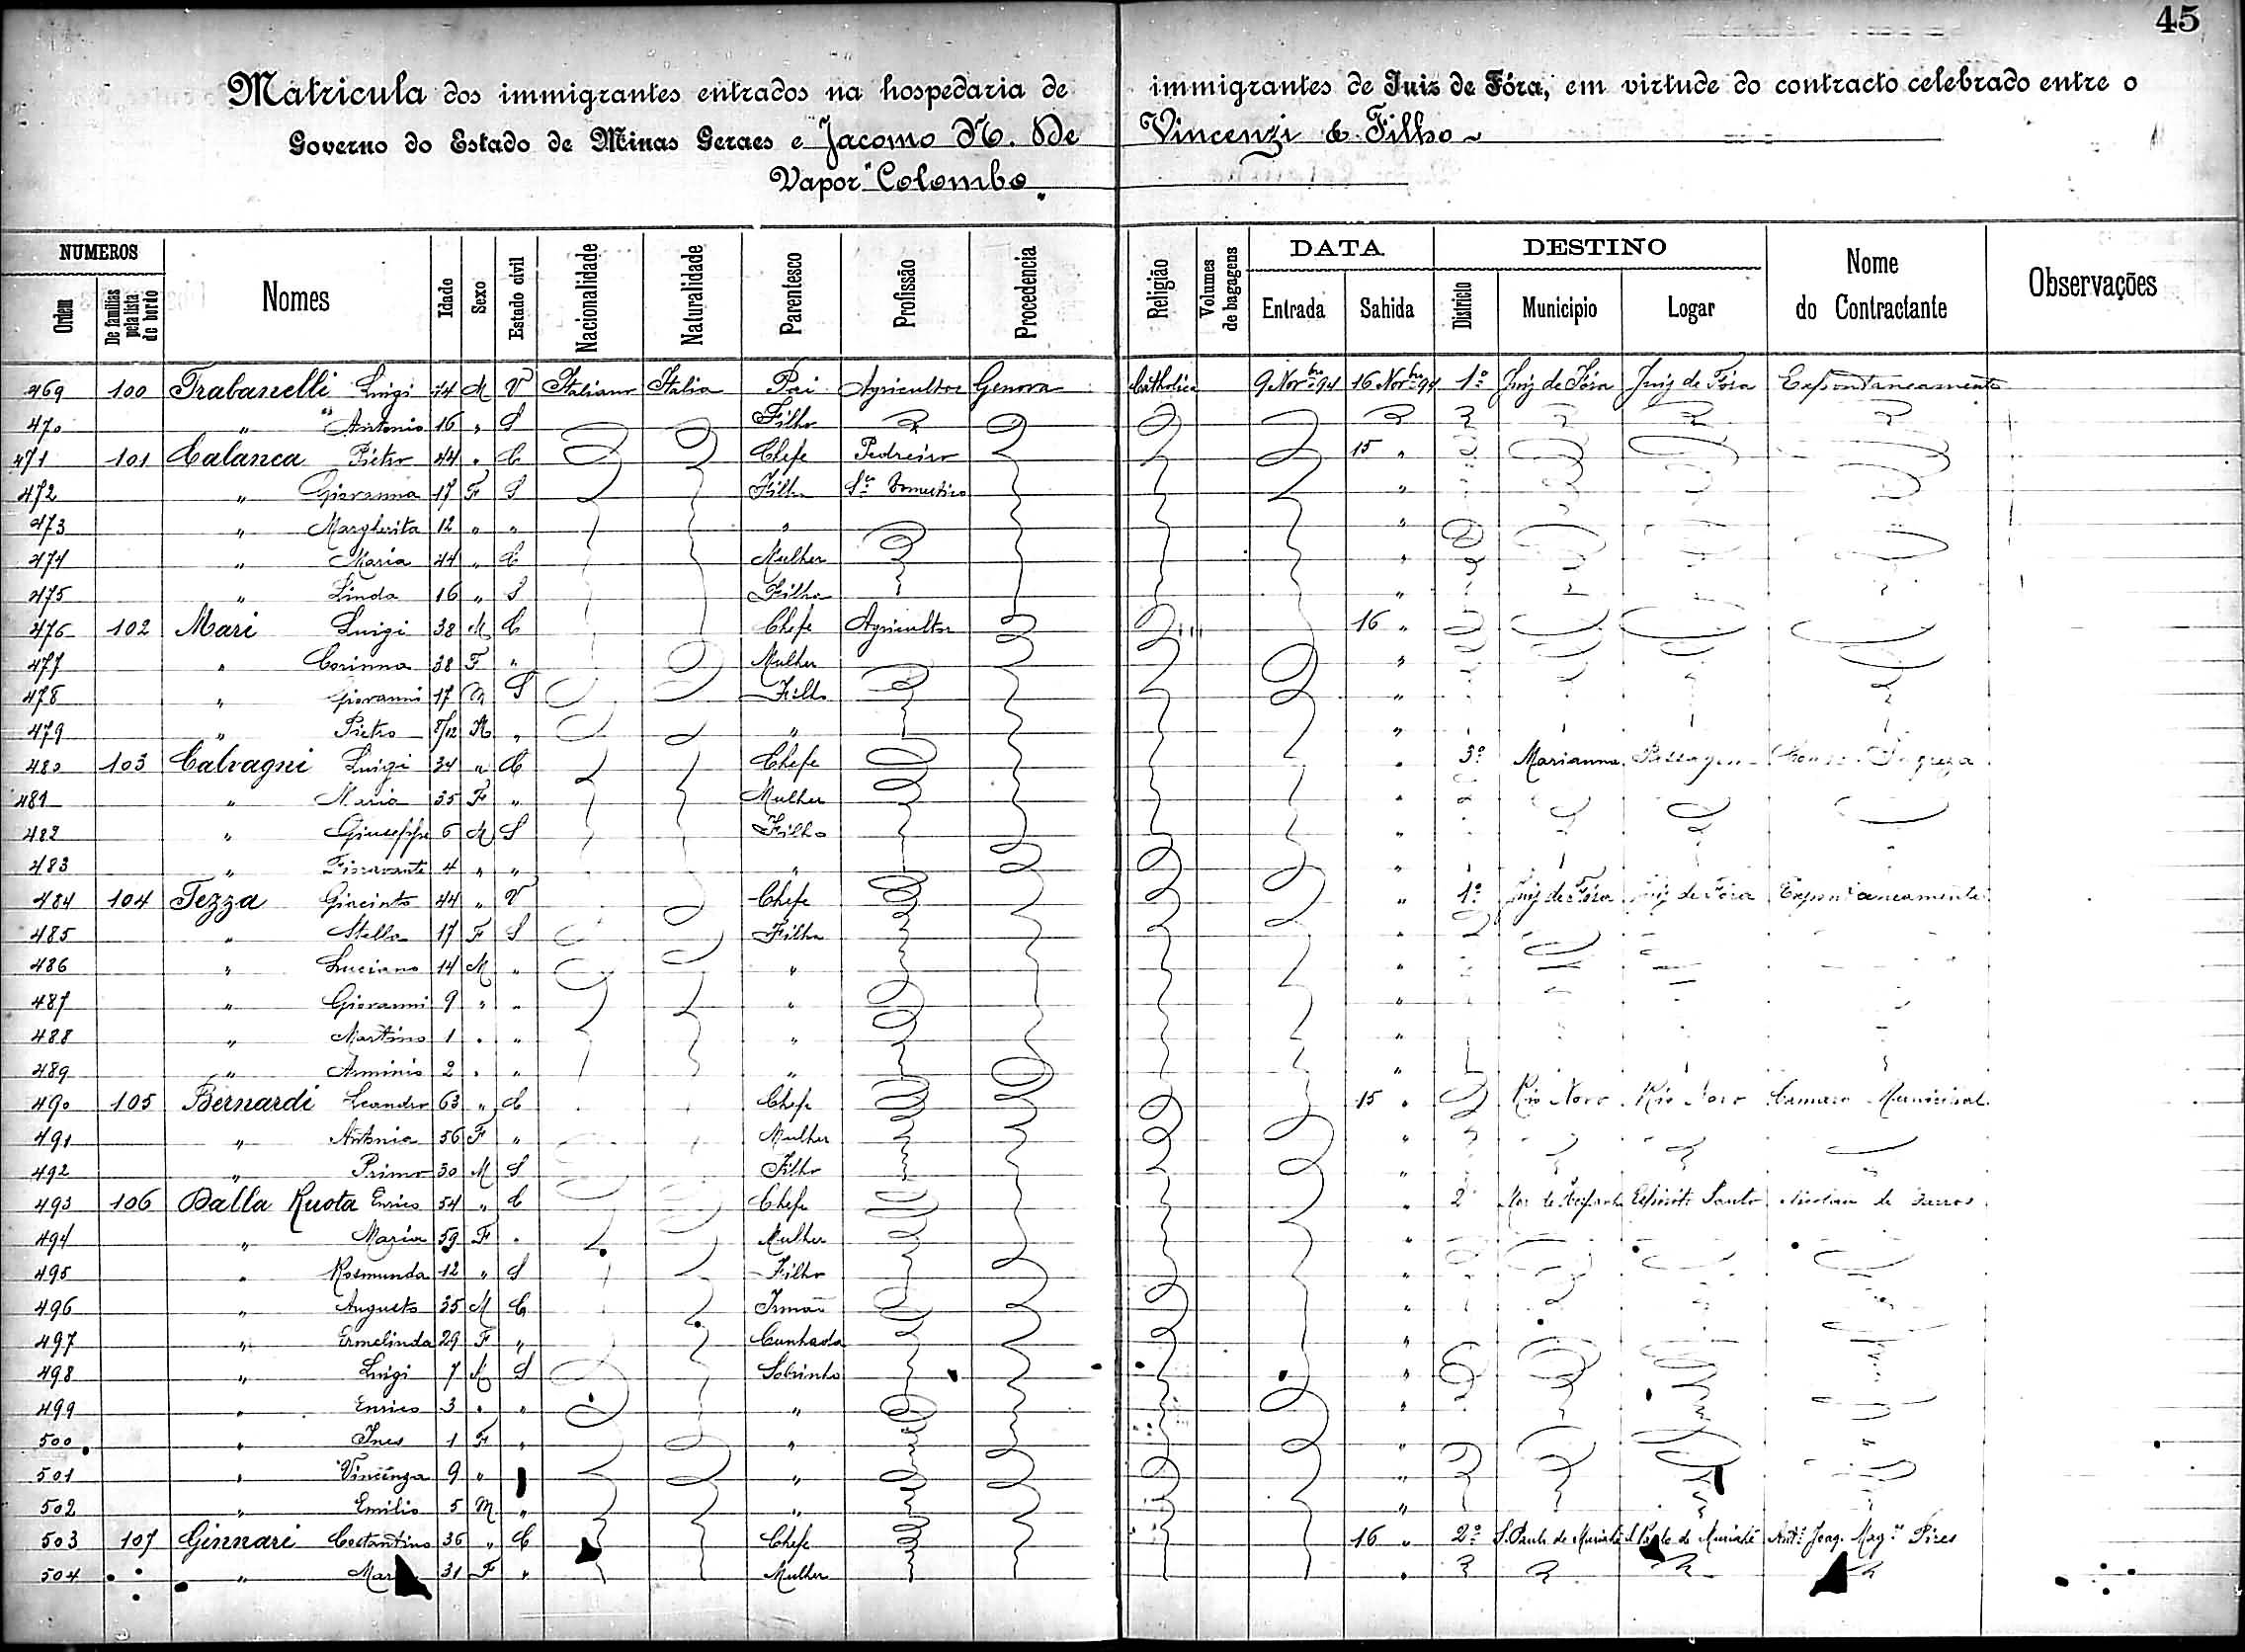 45
Matricula dos immigrantes entrados na hospedaria de immigrantes de Juiz de Fóra, em virtude do contracto celebrado entre o
Governo do Estado de Minas Geraes e Jacomo N. De Vincenzi & Filho
Vapor "Colombo.
NUMEROS DATA DESTINO
Ordem De familias pela lista de bordo Nomes Idade Sexo Estado civil Nacionalidade Naturalidade Parentesco Profissão Procedencia Religião Volumes de bagagens Entrada Sahida Districto Municipio Logar Nome do Contractante Observações
469 100 Trabanelli Luigi 44 M V Italiano Italia Pai Agricultor Genova Catholica 9 Novbre 94 16 Novbre 94 1º Juiz de Fóra Juiz de Fóra Expontaneamente
470 " " Antonio 16 " S Filho
471 101 Calanca Pietro 44 " C Chefe Pedreiro 15 "
472 " Giovanna 17 F S Filha Sço Domestico "
473 " Margherita 12 " " " "
474 " Maria 44 " C Mulher "
475 " Linda 16 " S Filha "
476 102 Mari Luigi 38 M C Chefe Agricultor 16 "
477 " Corinna 38 F " Mulher "
478 " Giovanni 17 M S Filho "
479 " Pietro 8/12 M " " "
480 103 Calvagni Luigi 34 " C Chefe " 3º Marianna Passagem
481 " Maria 35 F " Mulher "
482 " Giuseppe 6 M S Filho "
483 " Fioravante 4 " " " "
484 104 Tezza Giacinto 44 " V Chefe " 1º Juiz de Fóra Juiz de Fóra Expontaneamente
485 " Stella 17 F S Filha "
486 " Luciano 14 M " " "
487 " Giovanni 9 " " " "
488 " Martino 1 " " " "
489 " Arminio 2 " " " "
490 105 Bernardi Leandro 63 " C Chefe 15 " Rio Novo Rio Novo Camara Municipal
491 " Antonia 56 F " Mulher "
492 " Primo 30 M S Filho "
493 106 Dalla Ruota Enrico 54 " C Chefe " 2º Mar de Hespanha Espirito Santo de Barros
494 " Maria 59 F " Mulher "
495 " Rosmunda 12 " S Filha "
496 " Augusto 35 M C Irmão "
497 " Ermelinda 29 F " Cunhada "
498 " Luigi 7 M S Sobrinho "
499 " Enrico 3 " " " "
500 " Ines 1 F " " "
501 " Vincenza 9 " " "
502 " Emilio 5 M " " "
503 107 Ginnari Costantino 36 " C Chefe 16 " 2º S. Paulo de Muriahé S. Paulo de Muriahé Antº Joaq. Magês Pires
504 " 31 F " Mulher "